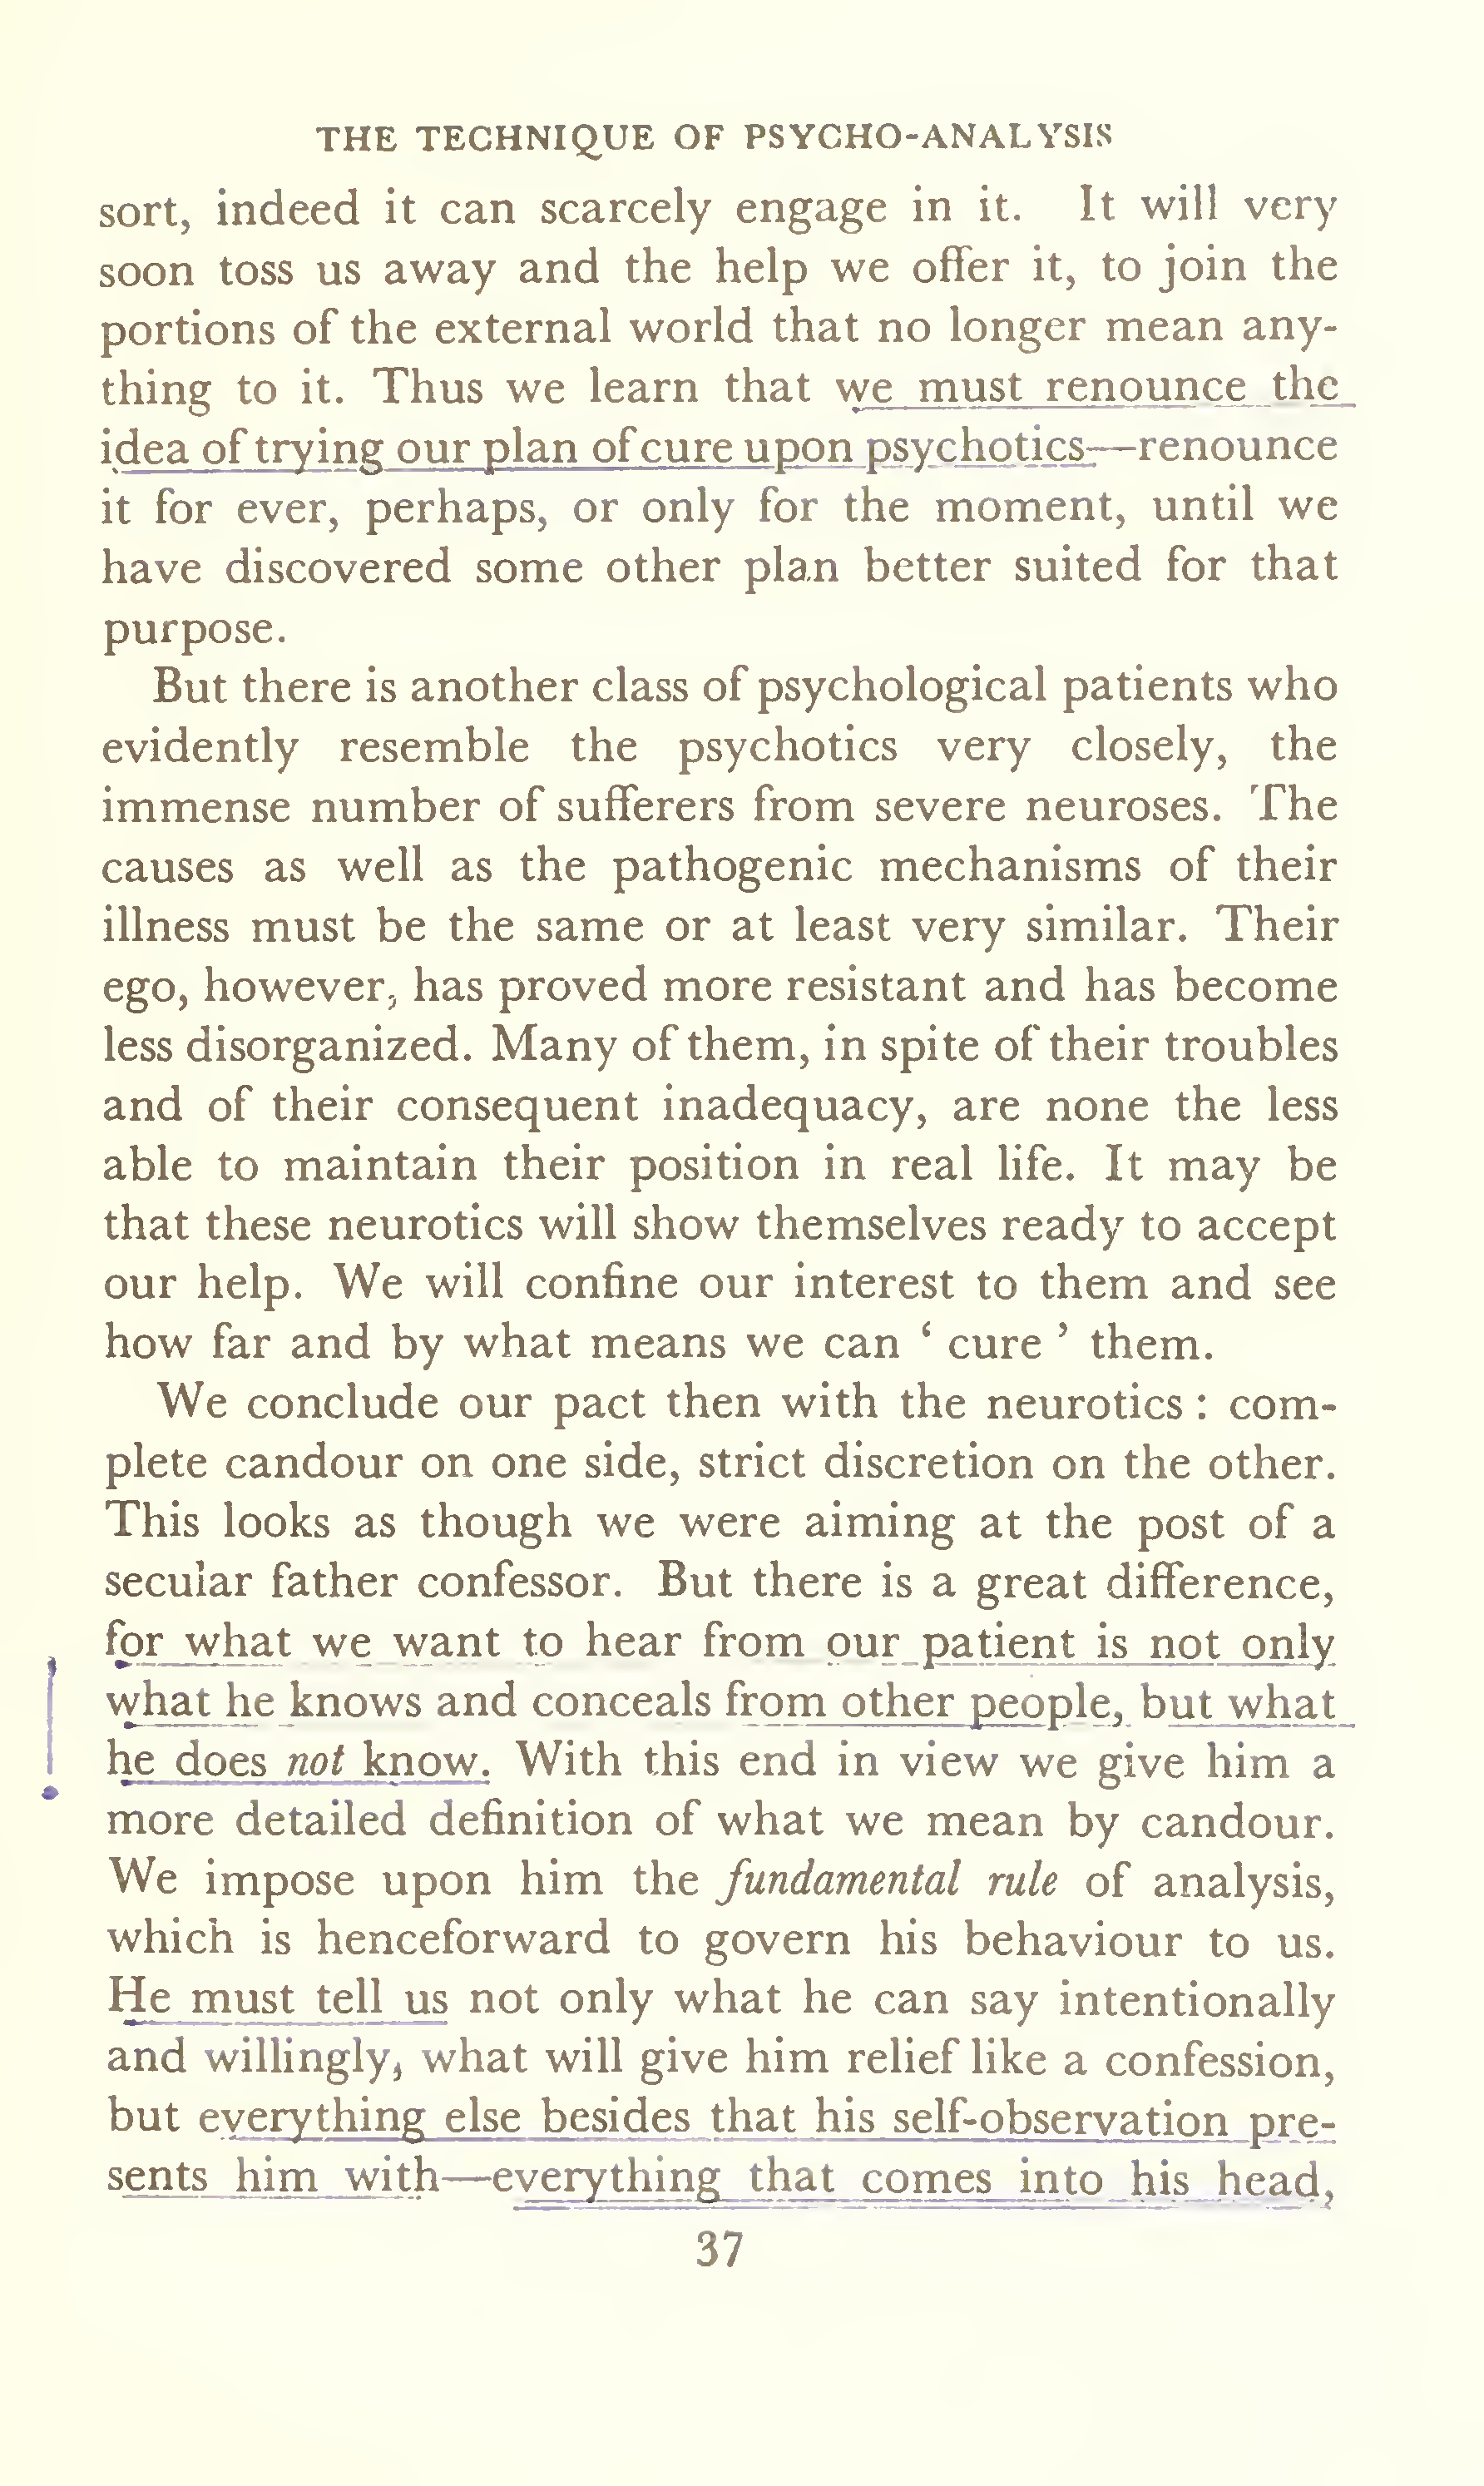 THE TECHNIQUE OF PSYCHO-ANALYSIS
sort, indeed it can scarcely engage in it. It will very
soon toss us away and the help we offer it, to join the
portions of the external world that no longer mean any-
thing to it. Thus we learn that we must renounce the
idea of trying our plan of cure upon psychotics—renounce
it for ever, perhaps, or only for the moment, until we
have discovered some other plan better suited for that
purpose.
But there is another class of psychological patients who
evidently resemble the psychotics very closely, the
immense number of sufferers from severe neuroses. The
causes as well as the pathogenic mechanisms of their
illness must be the same or at least very similar. Their
ego, however, has proved more resistant and has become
less disorganized. Many of them, in spite of their troubles
and of their consequent inadequacy, are none the less
able to maintain their position in real life. It may be
that these neurotics will show themselves ready to accept
our help. We will confine our interest to them and see
how far and by what means we can ‘ cure ’ them.
We conclude our pact then with the neurotics : com-
plete candour on one side, strict discretion on the other.
This looks as though we were aiming at the post of a
secular father confessor. But there is a great difference,
for what we want to hear from our patient is not only
what he knows and conceals from other people, but what
he does not know. With this end in view we give him a
more detailed definition of what we mean by candour.
We impose upon him the fundamental rule of analysis,
which is henceforward to govern his behaviour to us.
He must tell us not only what he can say intentionally
and willingly, what will give him relief like a confession,
but everything else besides that his self-observation pre-
sents him with—everything that comes into his head,
37